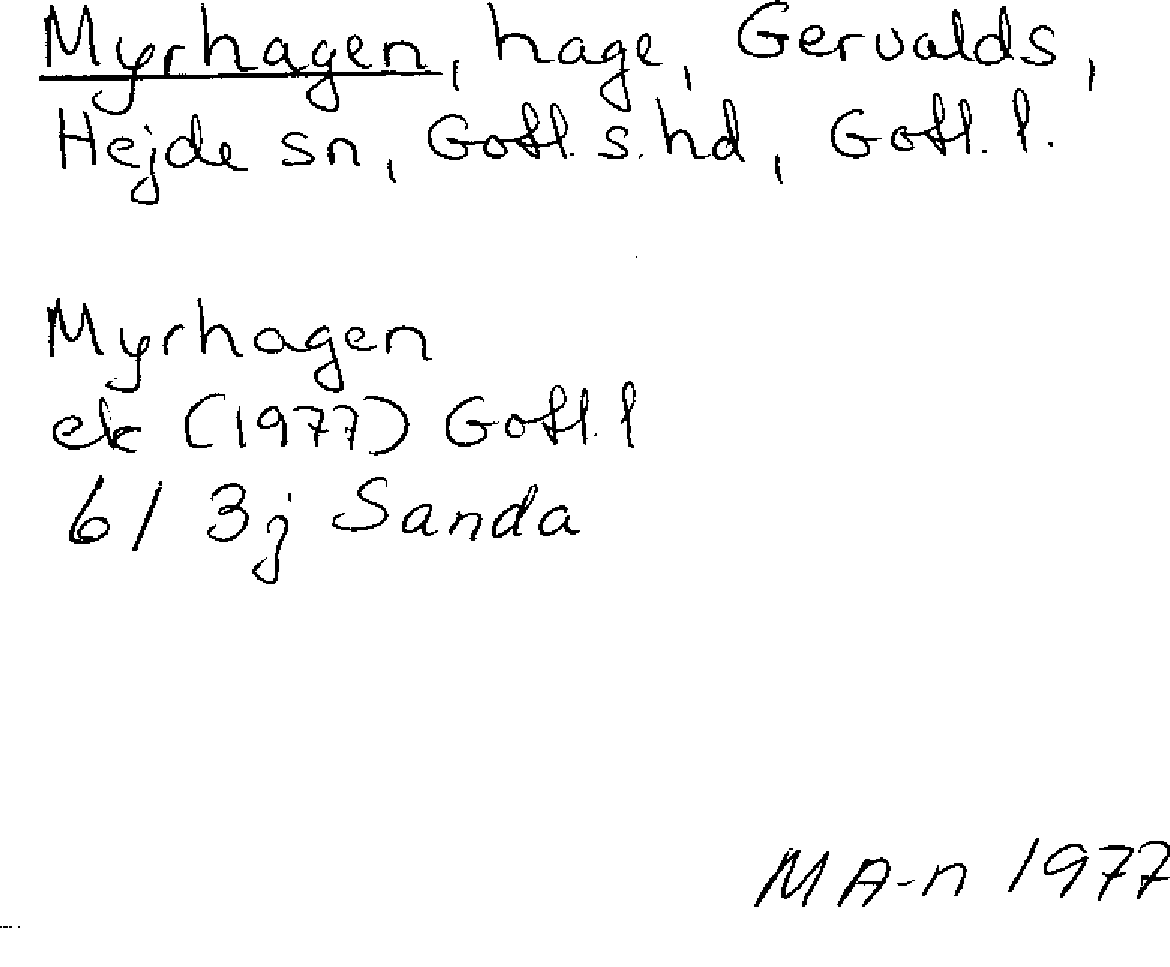 Myrhagen, hage, Gervalds,
Hejde sn, Gotl. s. hd, Gotl. l.
Myrhagen
ek (1977) Gotl. l
6 / 3j Sanda
MA-n 1977